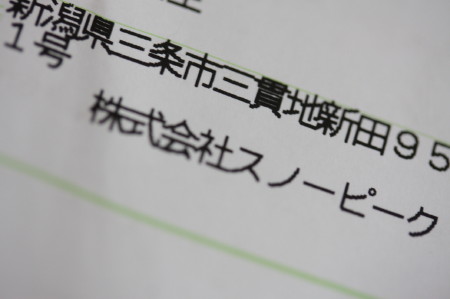 新潟県三条市三貫地新田９５
１号
株式会社スノーピーク